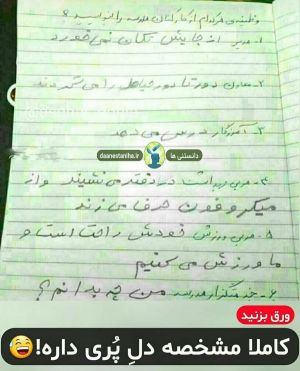 وظیفه‌ی هر کدام از کارکنان مدرسه را بنویسید؟
۱- مدیر از جایش تکان نمی خورد
۲- معاون دور تا دور حیاط را می گردند
۳- آموزگار درس می دهد
دانستنی ها
daanestaniha.ir
۴- مربی در دفتر می نشیند و از
میکروفون حرف می زند
۵- مربی ورزش خودش راحت است و
ما ورزش می کنیم
۶- خدمتگزار مدرسه من چه بدانم؟
ورق بزنید
کاملا مشخصه دلِ پُری داره!😅